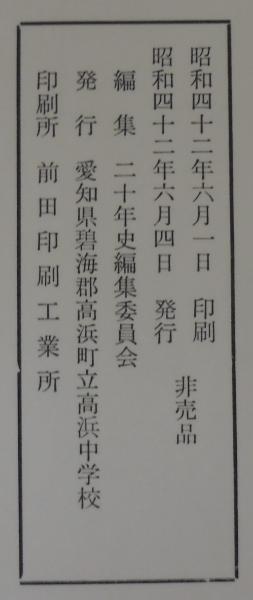 昭和四十二年六月一日　印刷
昭和四十二年六月四日　発行
非売品
編集　二十年史編集委員会
発行　愛知県碧海郡高浜町立高浜中学校
印刷所　前田印刷工業所